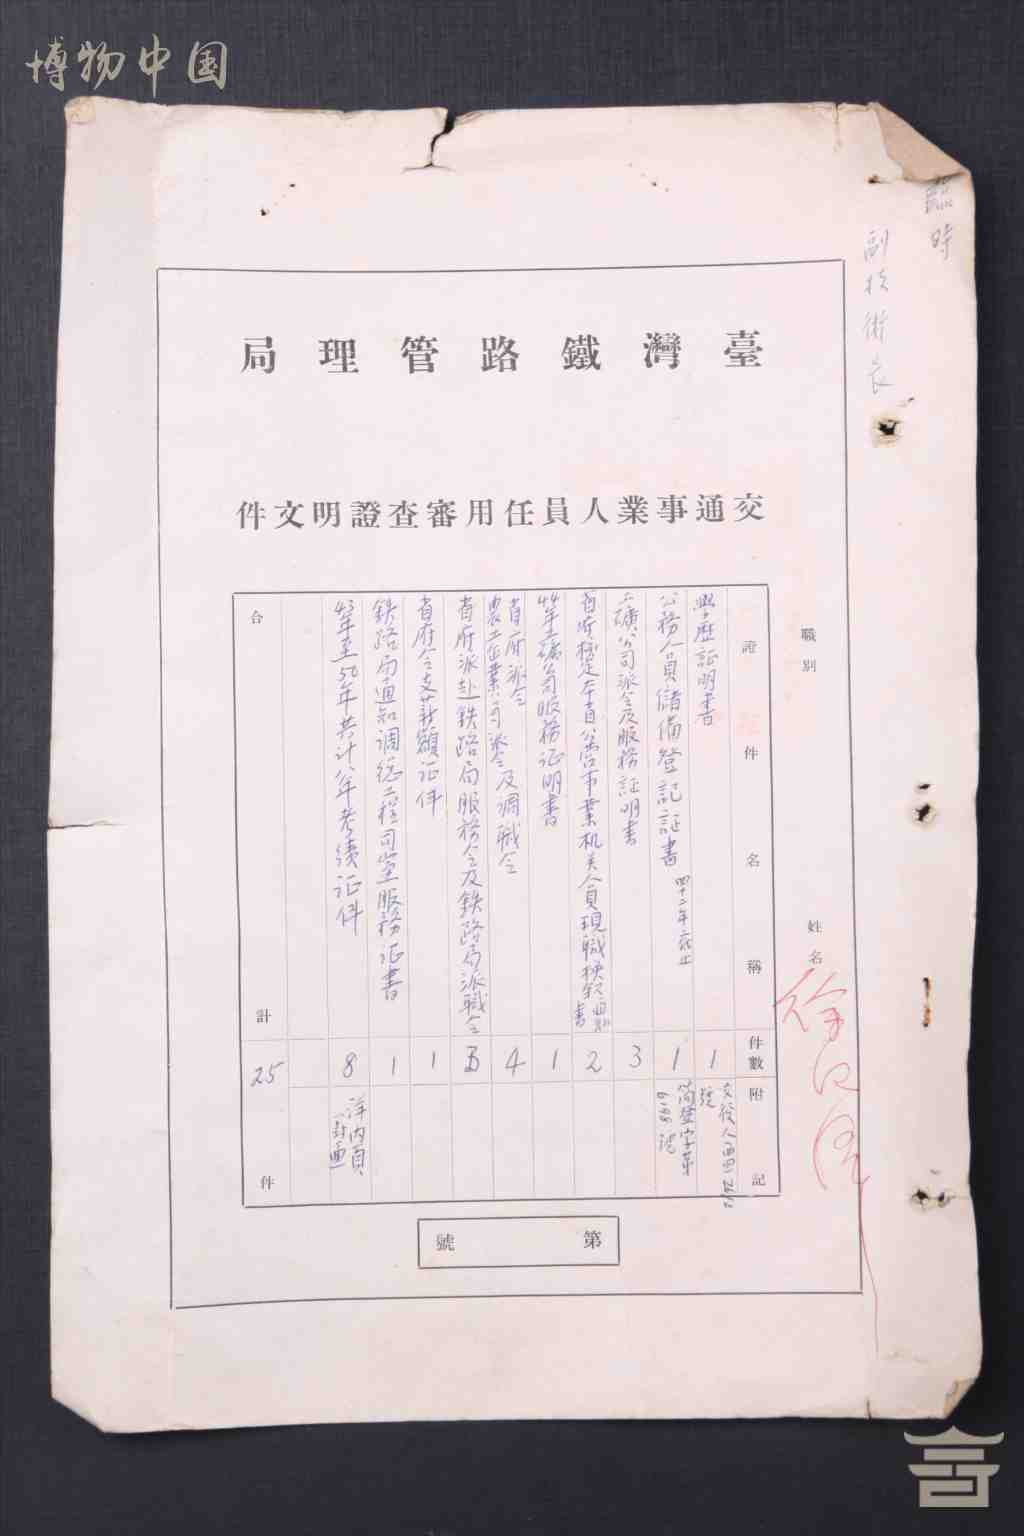 博物中国
臨時
副技術長
臺灣鐵路管理局
交通事業人員任用審查證明文件
職別
姓名
徐
證件名稱
件數
附記
學歷証明書
1
交役人
號
公務人員儲備登記証書
四十二年
1
簡登字第
6198號
工礦公司派令及服務証明書
3
省府核定本省公营事業机关人員現職换敘
書
2
44年工礦公司服務证明書
1
省府派令
農工企業公司派令及調職令
4
省府派赴鉄路局服務令及鉄路局派職令
省府令支薪額证件
1
鉄路局通知调総工程司室服務证書
1
43年至50年共计八年考績证件
8
洋内頁
一封面
合計
25
件
第 號